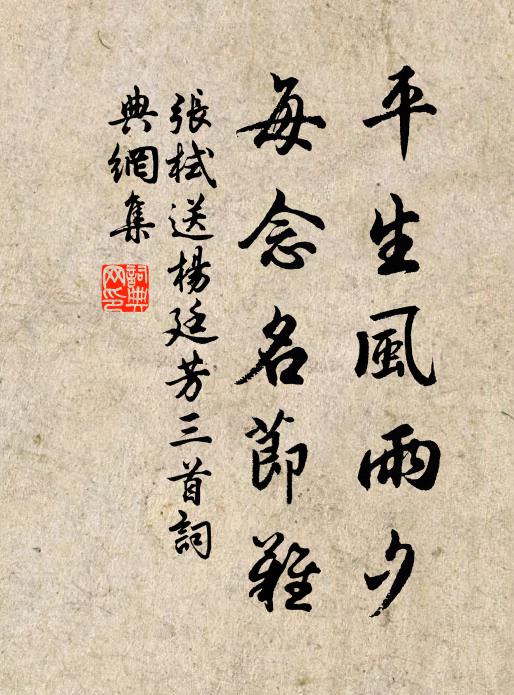 平生風雨夕
每念名節難
張栻送楊廷芳三首詞
典網集
詞典網印